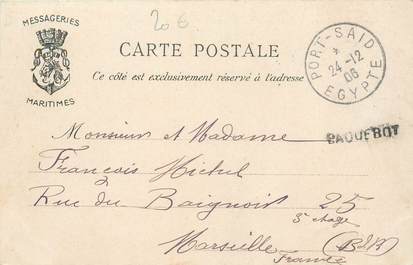 20 €
MESSAGERIES
MARITIMES
CARTE POSTALE
Ce côté est exclusivement réservé à l'adresse
PORT-SAID
*
24-12
06
EGYPTE
PAQUEBOT
Monsieur et Madame
François Michel
Rue du Baignoir 25
3e étage
Marseille (B d R)
France